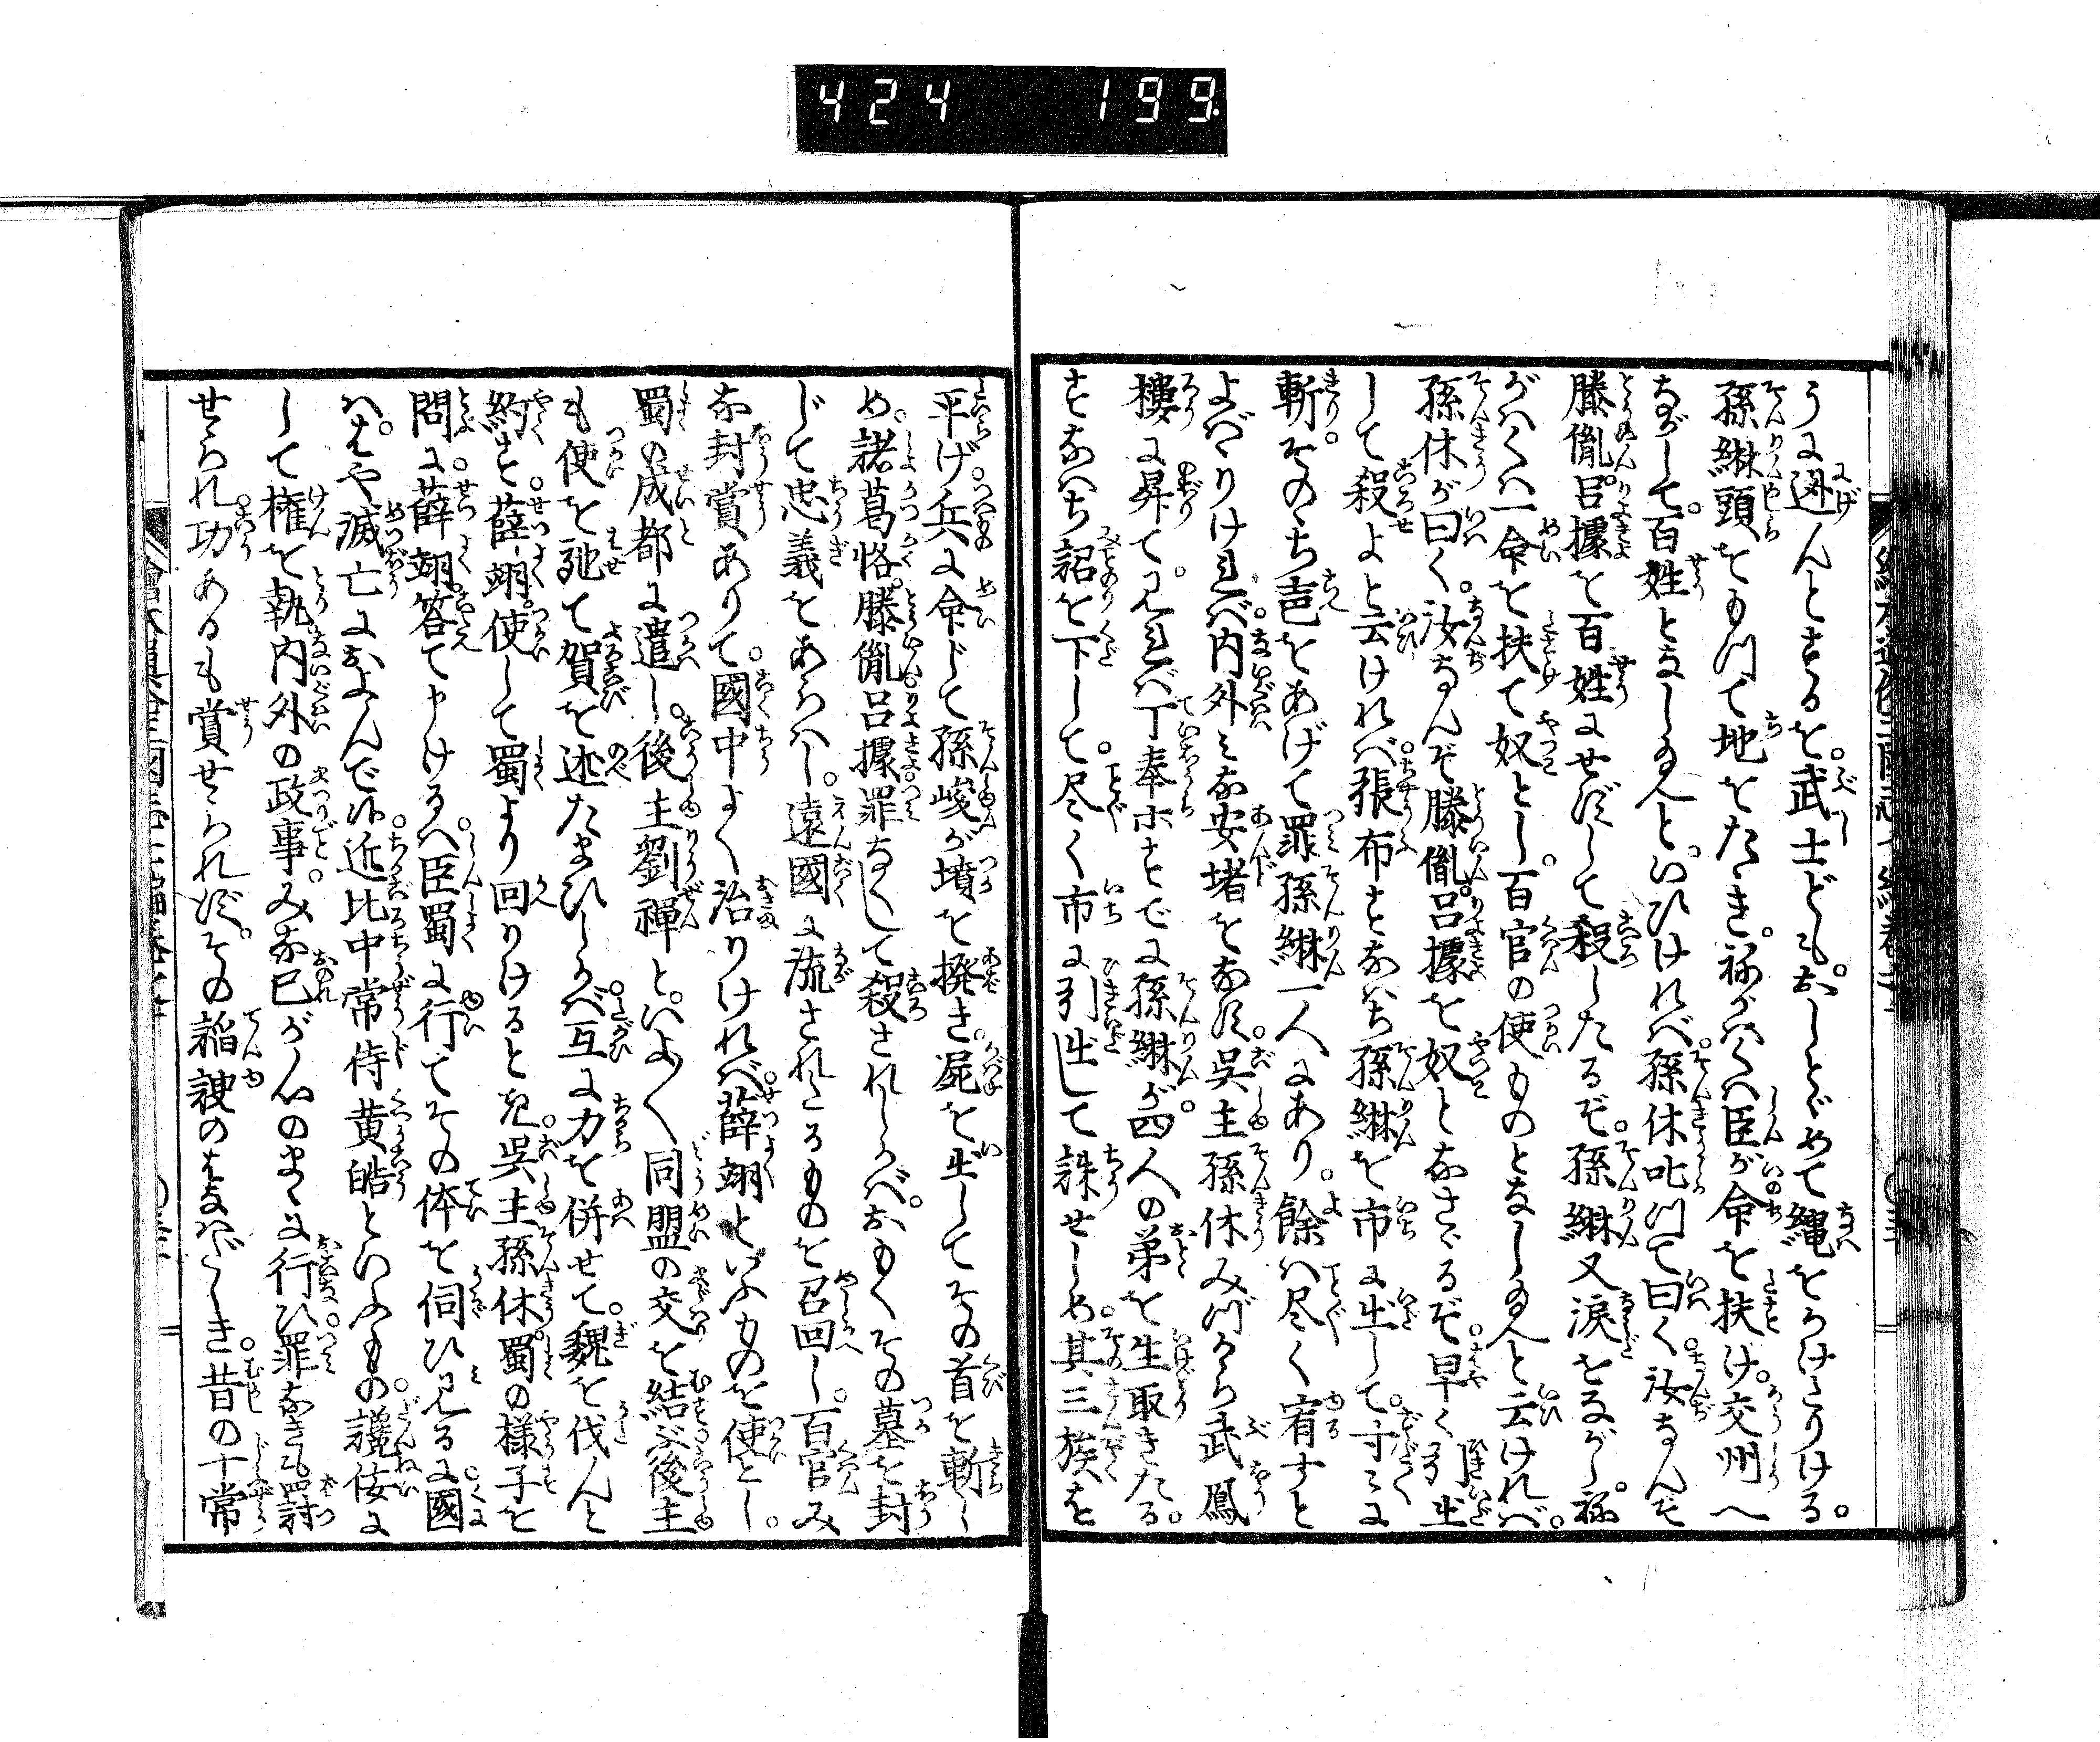 424 199
うに逃んとするを。武士ども。おしとゞめて縄をかけたりける。
孫綝頭をもつて地をたゝき。祢がはくは臣が命を扶け。交州へ
ながして。百姓となし給へと。いひければ。孫休叱つて曰く。汝なんぞ
滕胤。呂據を百姓にせずして殺したるぞ。孫綝又涙をながし。祢
がはくは一命を扶て奴とし。百官の使ものとなし給へと云ければ。
孫休が曰く。汝なんぞ滕胤。呂據を奴となさゞるぞ。早く引出
して殺せよと云ければ。張布すなはち孫綝を市に出して。寸々に
斬。そのゝち声をあげて罪孫綝一人にあり。餘は尽く宥すと
よばゝりければ。内外みな安堵をなす。呉主孫休みづから武鳳
樓に昇て。見れば丁奉ホすでに孫綝が。四人の弟を生取きたる。
すなはち詔を下して。尽く市に引出して誅せしめ。其三族を
平げ。兵に命じて孫峻が墳を撥き。屍を出してその首を斬し
め。諸葛恪。滕胤呂據罪なくして殺されしかば。おもくその墓を封
じて忠義をあらはし。遠國に流されたるものを召回し。百官み
な封賞ありて。國中よく治りければ。薛翊といふものを使とし。
蜀の成都に遣し。後主劉禪と。いよ〱同盟の交を結ぶ。後主
も使を馳て賀を述たまひしかば。互に力を併せて。魏を伐んと
約す。薛翊使して蜀より回りけるとき。呉主孫休。蜀の様子を
問に。薛翊。答て申けるは。臣蜀に行てその体を伺ひ見るに。國
はや滅亡におよんで候。近比中常侍黄皓といふもの。讒佞に
して権を執。内外の政事。みな己が心のまゝに行ひ。罪なきも罸
せられ。功あるも賞せられず。その諂諛のはなはだしき。昔の十常